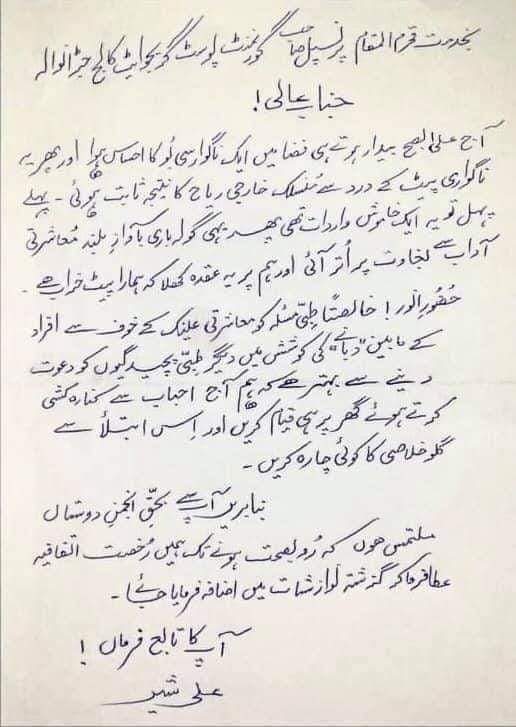 بخدمت محترم المقام پرنسپل صاحب گورنمنٹ پوسٹ گریجوایٹ کالج جڑانوالہ
جناب عالی !
آج علی الصبح بیدار ہوتے ہی فضا میں ایک ناگوار سی بُو کا احساس ہوا اور پھر یہ
ناگواری پیٹ کے درد سے مُنسلک خارجی ریاح کا نتیجہ ثابت ہوئی ۔ پہلے
پہل تو یہ ایک خاموش واردات تھی پھر یہی گولہ باری بآوازِ بلند معاشرتی
آداب سے بغاوت پر اُتر آئی اور ہم پر یہ عقدہ کھلا کہ ہمارا پیٹ خراب ہے ۔
حضورِ انور ! خالصتاً طبّی مسٔلہ کو معاشرتی علینک کے خوف سے افراد
کے مابین "دبانے" کی کوشش میں دیگر طبّی پیچیدگیوں کو دعوت
دینے سے بہتر ہے کہ ہم آج احباب سے کنارہ کشی
کرتے ہوئے گھر پر ہی قیام کریں اور اِس ابتلأ سے
گلو خلاصی کا کوئی چارہ کریں ۔
بنابریں آپ سے بحقِّ انجمنِ دوستاں
ملتمس ہوں کہ رُو بصحت ہونے تک ہمیں رُخصت اتفاقیہ
عطا فرما کر گذشتہ نوازشات میں اضافہ فرمایا جائے ۔
آپ کا تابع فرماں !
علی شیر